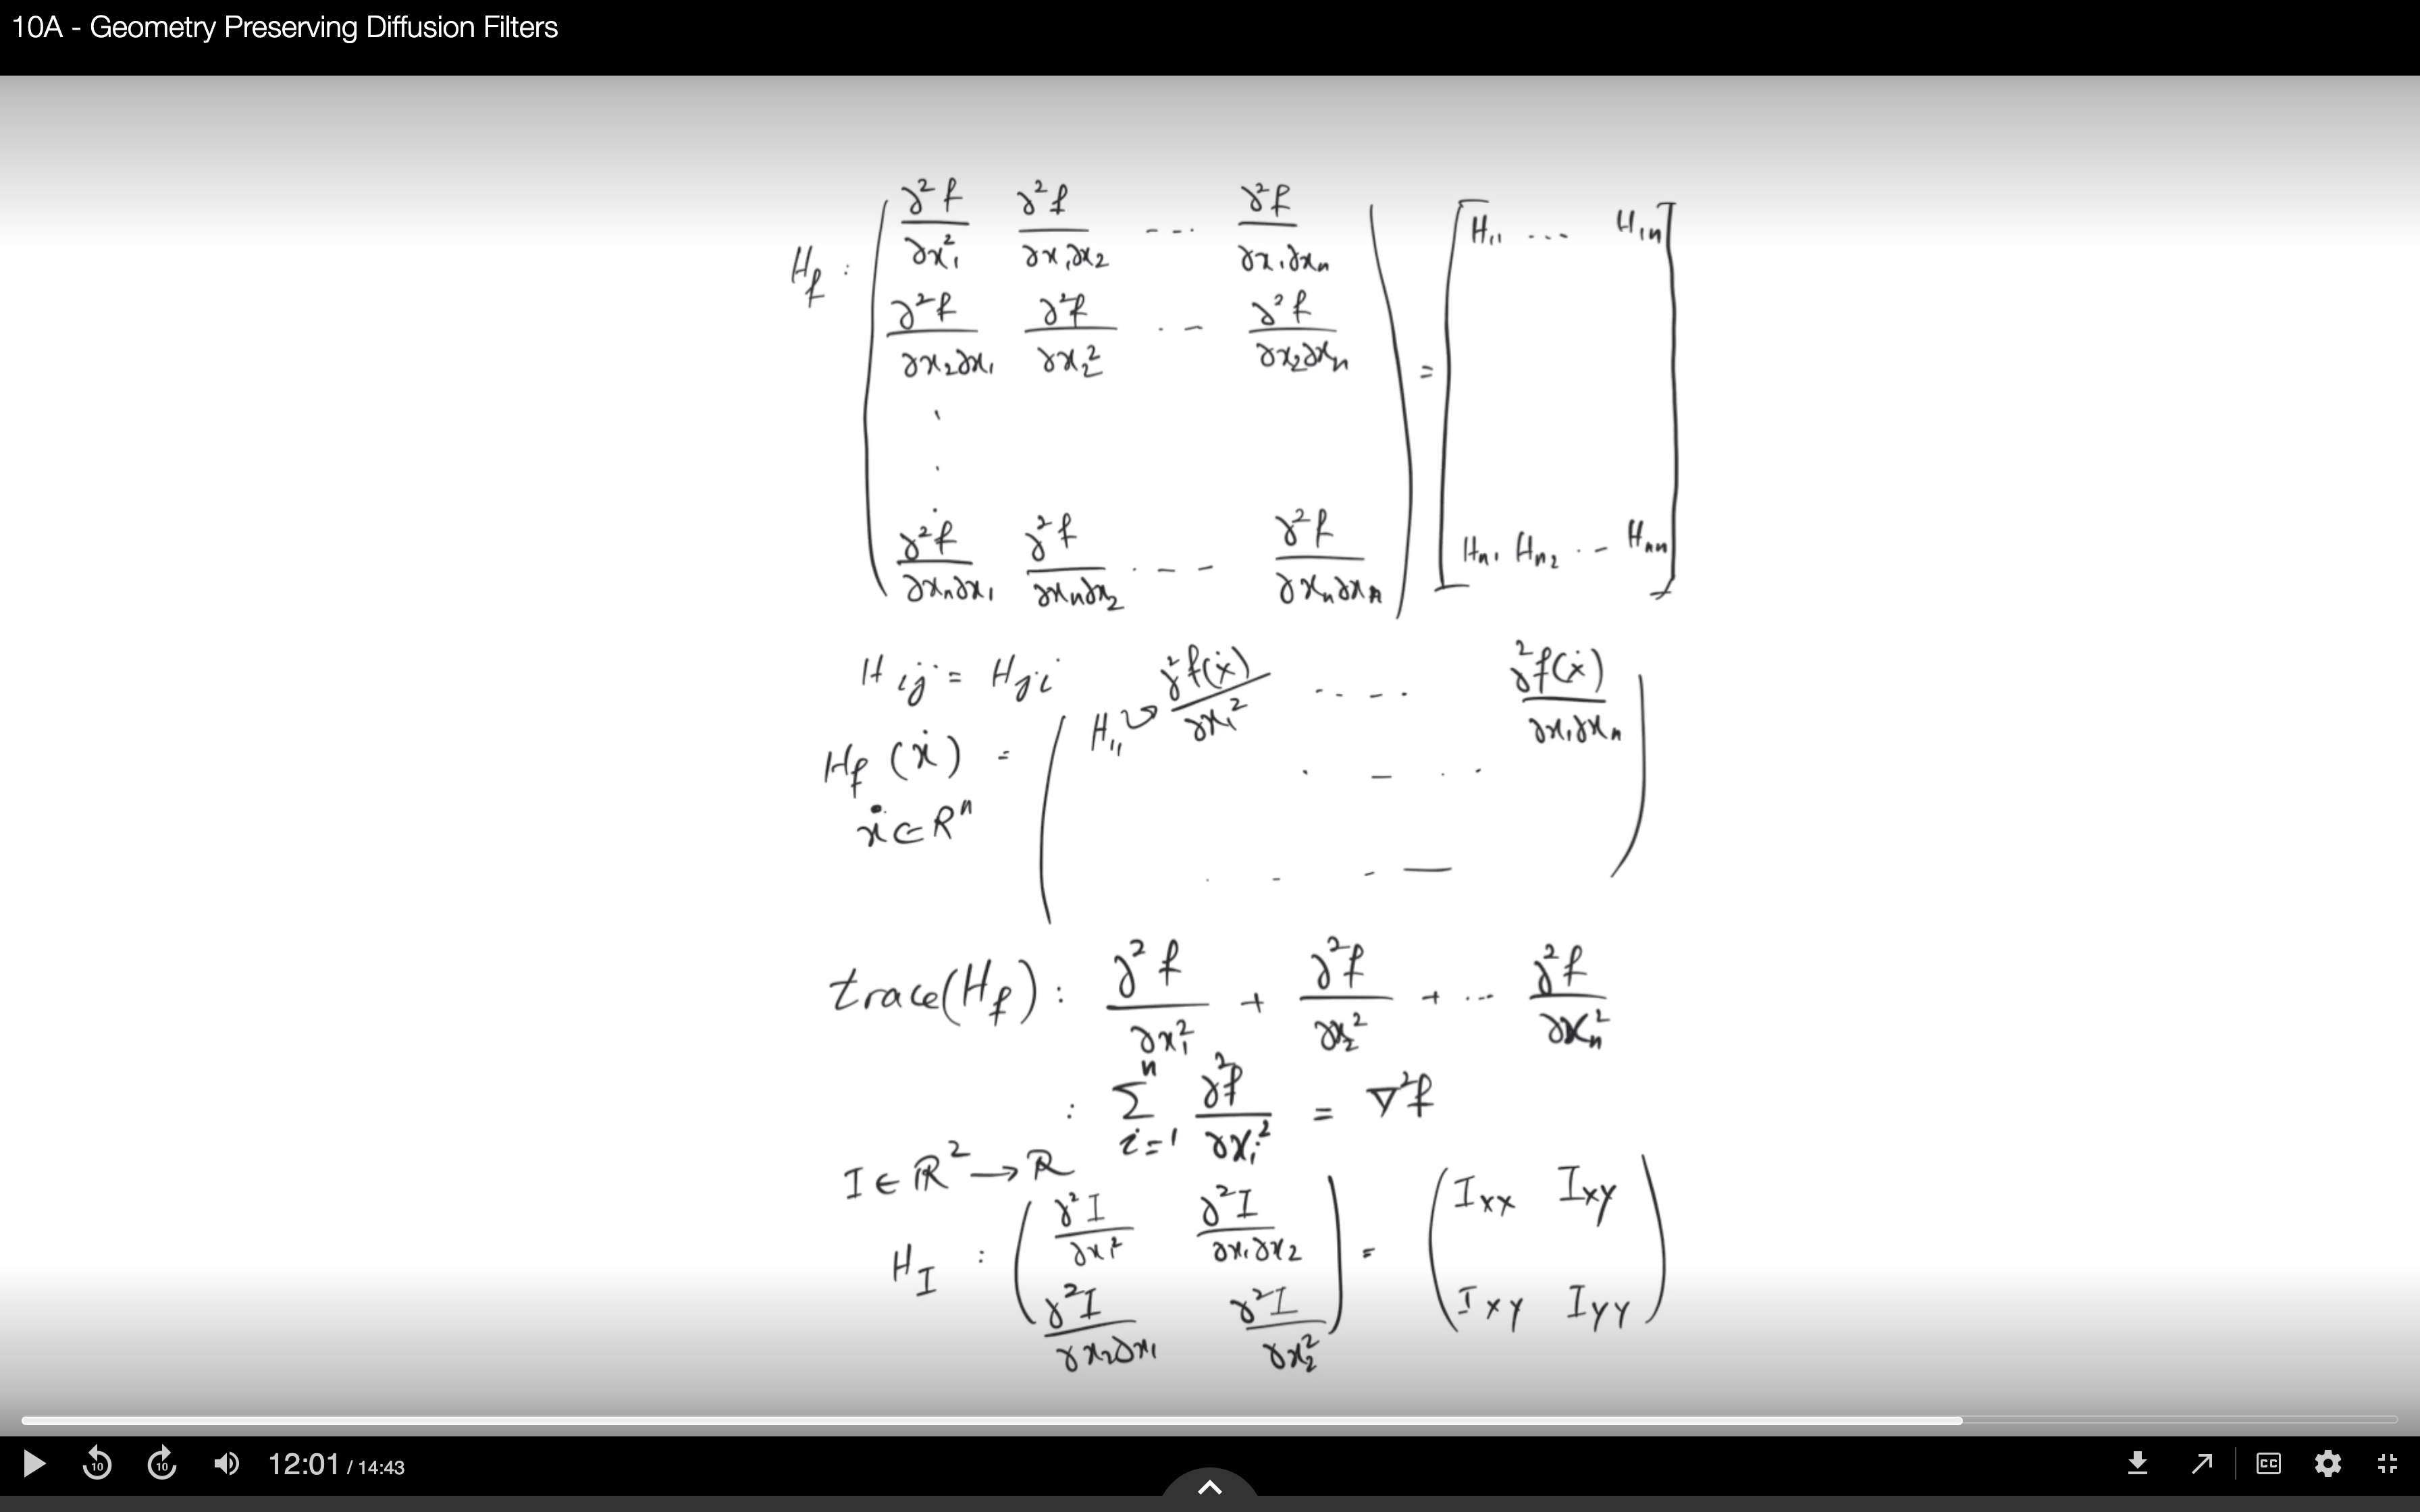 10A - Geometry Preserving Diffusion Filters
H_f : ( ∂²f/∂x₁² ∂²f/∂x₁∂x₂ --- ∂²f/∂x₁∂xₙ ) = [ H₁₁ ... H₁ₙ ]
∂²f/∂x₂∂x₁ ∂²f/∂x₂² .-- ∂²f/∂x₂∂xₙ
.
.
.
∂²f/∂xₙ∂x₁ ∂²f/∂xₙ∂x₂ .--- ∂²f/∂xₙ∂xₙ Hₙ₁ Hₙ₂ ..- Hₙₙ
H_ij = H_ji
H_f (ẋ) = ( H₁₁ ∂²f(ẋ)/∂x₁² ..... ∂²f(ẋ)/∂x₁∂xₙ )
ẋ ∈ Rⁿ
trace(H_f) : ∂²f/∂x₁² + ∂²f/∂x₂² + ... ∂²f/∂xₙ²
: Σ_{i=1}^{n} ∂²f/∂xᵢ² = ∇²f
I ∈ R² → R
H_I : ( ∂²I/∂x₁² ∂²I/∂x₁∂x₂ ) = ( I_xx I_xy )
∂²I/∂x₂∂x₁ ∂²I/∂x₂² I_xy I_yy
10 10 12:01 / 14:43 CC